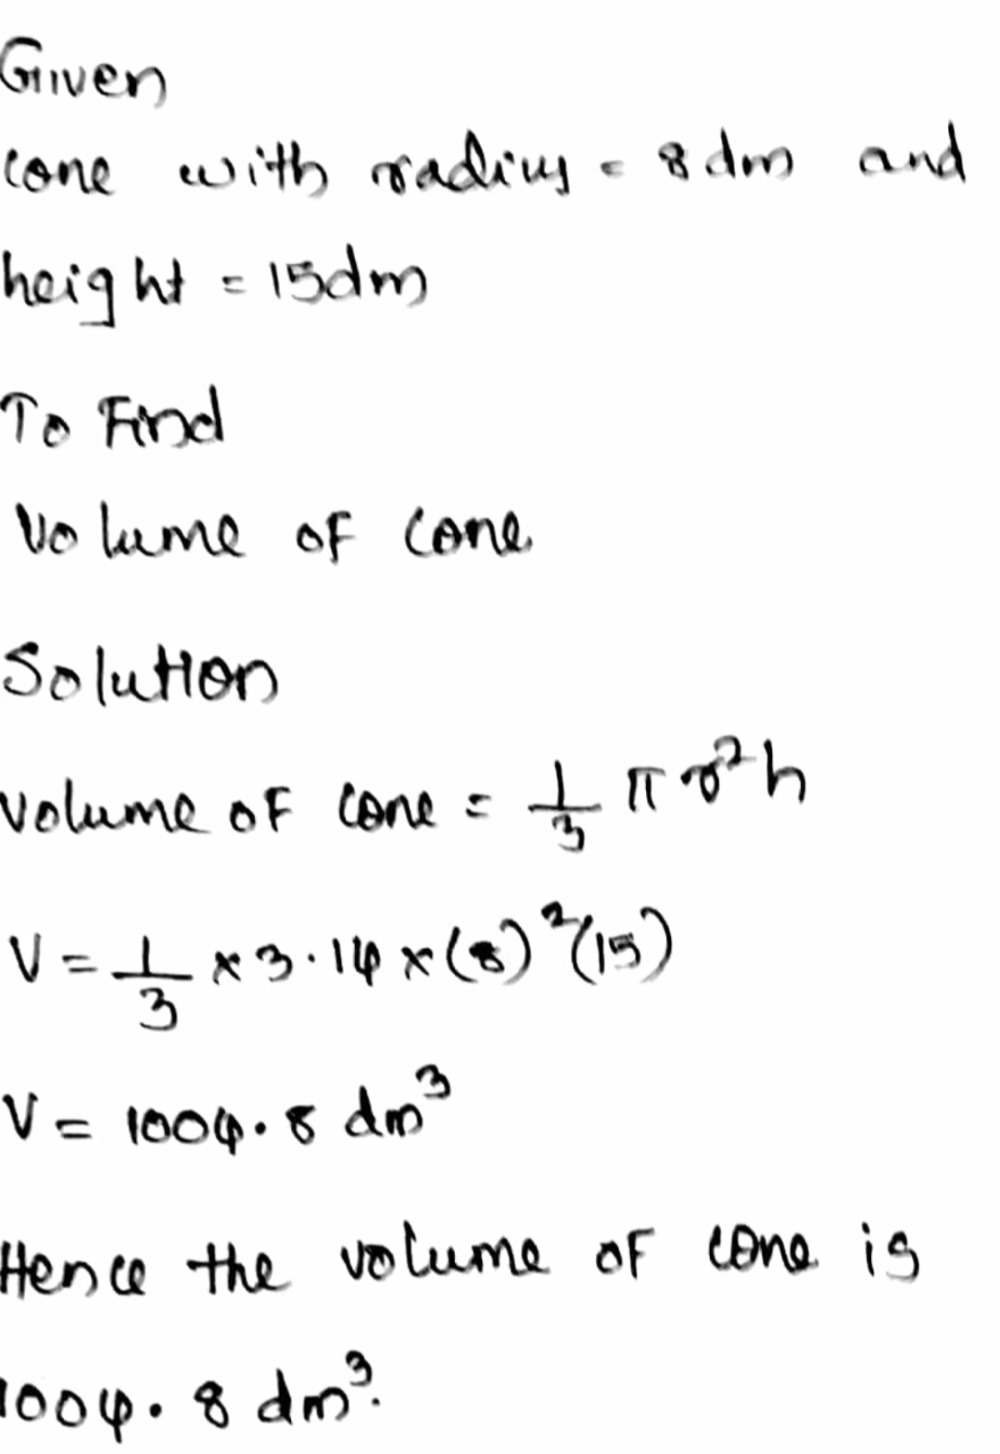 Given
cone with radius = 8dm and
height = 15dm
To Find
Volume of cone
Solution
Volume of cone = 1/3 π r²h
V = 1/3 × 3.14 × (8)²(15)
V = 1004.8 dm³
Hence the volume of cone is
1004.8 dm³.